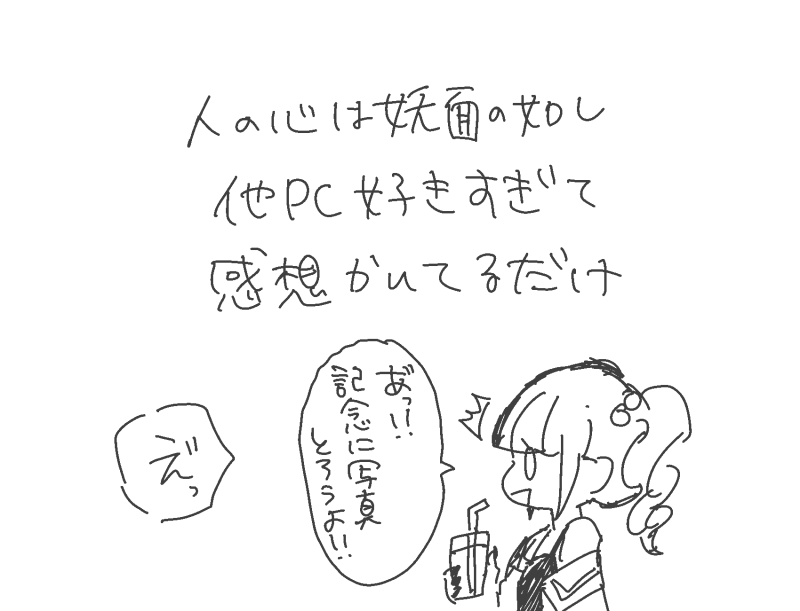 人の心は妖面の如し
他PC好きすぎて
感想かいてるだけ
あっ!!
記念に写真
とろうよ!!
え゛っ